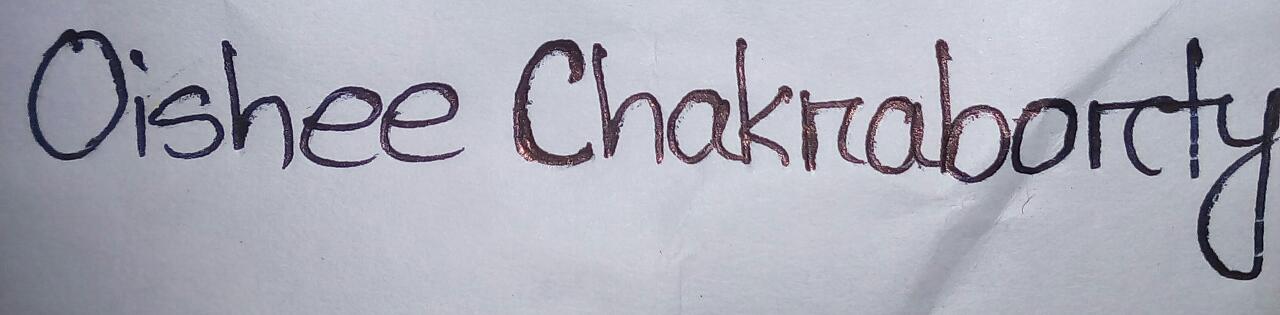 Oishee Chakraborty